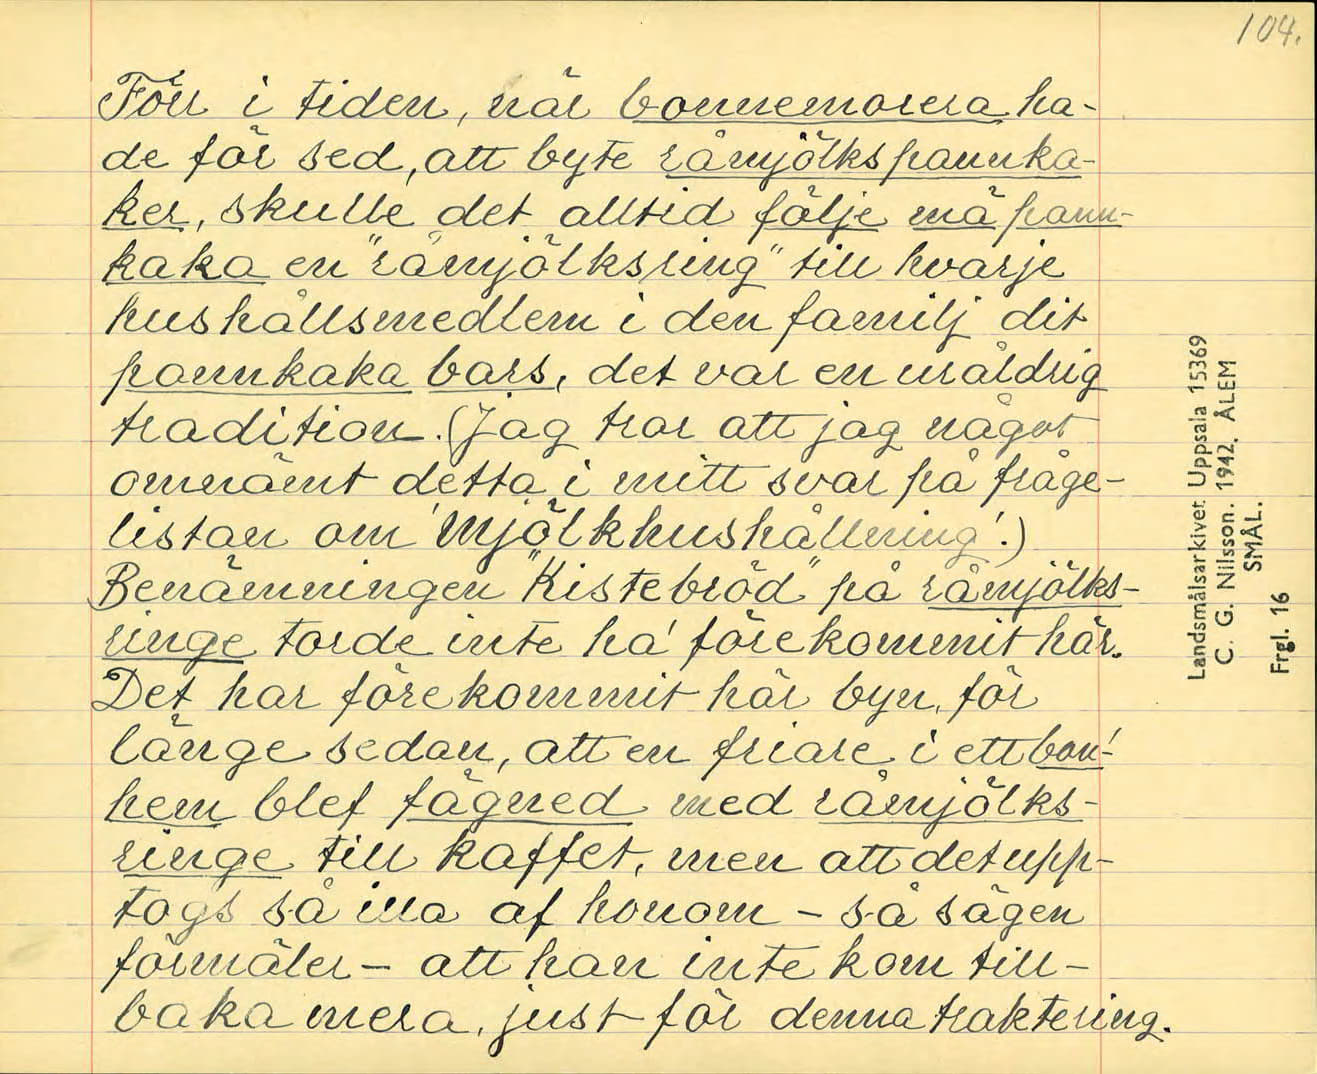 104.
Förr i tiden, när bonnemorera ha-
de för sed, att byte råmjölkspannka-
ker, skulle det alltid följe mä pann-
kaka en "råmjölksring" till hvarje
hushållsmedlem i den familj dit
pannkaka bars, det var en uråldrig
tradition. (Jag tror att jag något
omnämt detta i mitt svar på fråge-
listan om 'Mjölkhushållning'.)
Benämningen "Kistebröd" på råmjölks-
ringe torde inte ha' förekommit här.
Det har förekommit här byn, för
länge sedan, att en friare i ett bon'-
hem blef fägned med råmjölks-
ringe till kaffet, men att det upp-
togs så illa af honom - så sägen
förmäler - att han inte kom till-
baka mera, just för denna traktering.
Landsmålsarkivet Uppsala 15369
C. G. Nilsson. 1942. ÅLEM
SMÅL.
Frgl. 16